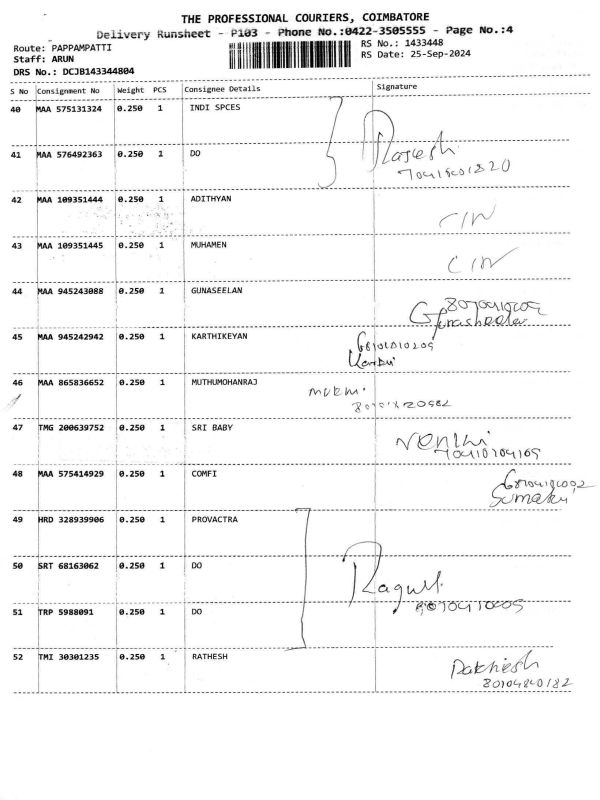 THE PROFESSIONAL COURIERS, COIMBATORE
Delivery Runsheet - P103 - Phone No.:0422-3505555 - Page No.:4
Route: PAPPAMPATTI RS No.: 1433448
Staff: ARUN RS Date: 25-Sep-2024
DRS No.: DCJB143344804
S No Consignment No Weight PCS Consignee Details Signature
40 MAA 575131324 0.250 1 INDI SPCES
41 MAA 576492363 0.250 1 DO Rajesh
42 MAA 109351444 0.250 1 ADITHYAN
43 MAA 109351445 0.250 1 MUHAMEN
44 MAA 945243088 0.250 1 GUNASEELAN
45 MAA 945242942 0.250 1 KARTHIKEYAN
46 MAA 865836652 0.250 1 MUTHUMOHANRAJ
47 TMG 200639752 0.250 1 SRI BABY
48 MAA 575414929 0.250 1 COMFI
49 HRD 328939906 0.250 1 PROVACTRA
50 SRT 68163062 0.250 1 DO
51 TRP 5988091 0.250 1 DO
52 TMI 30301235 0.250 1 RATHESH